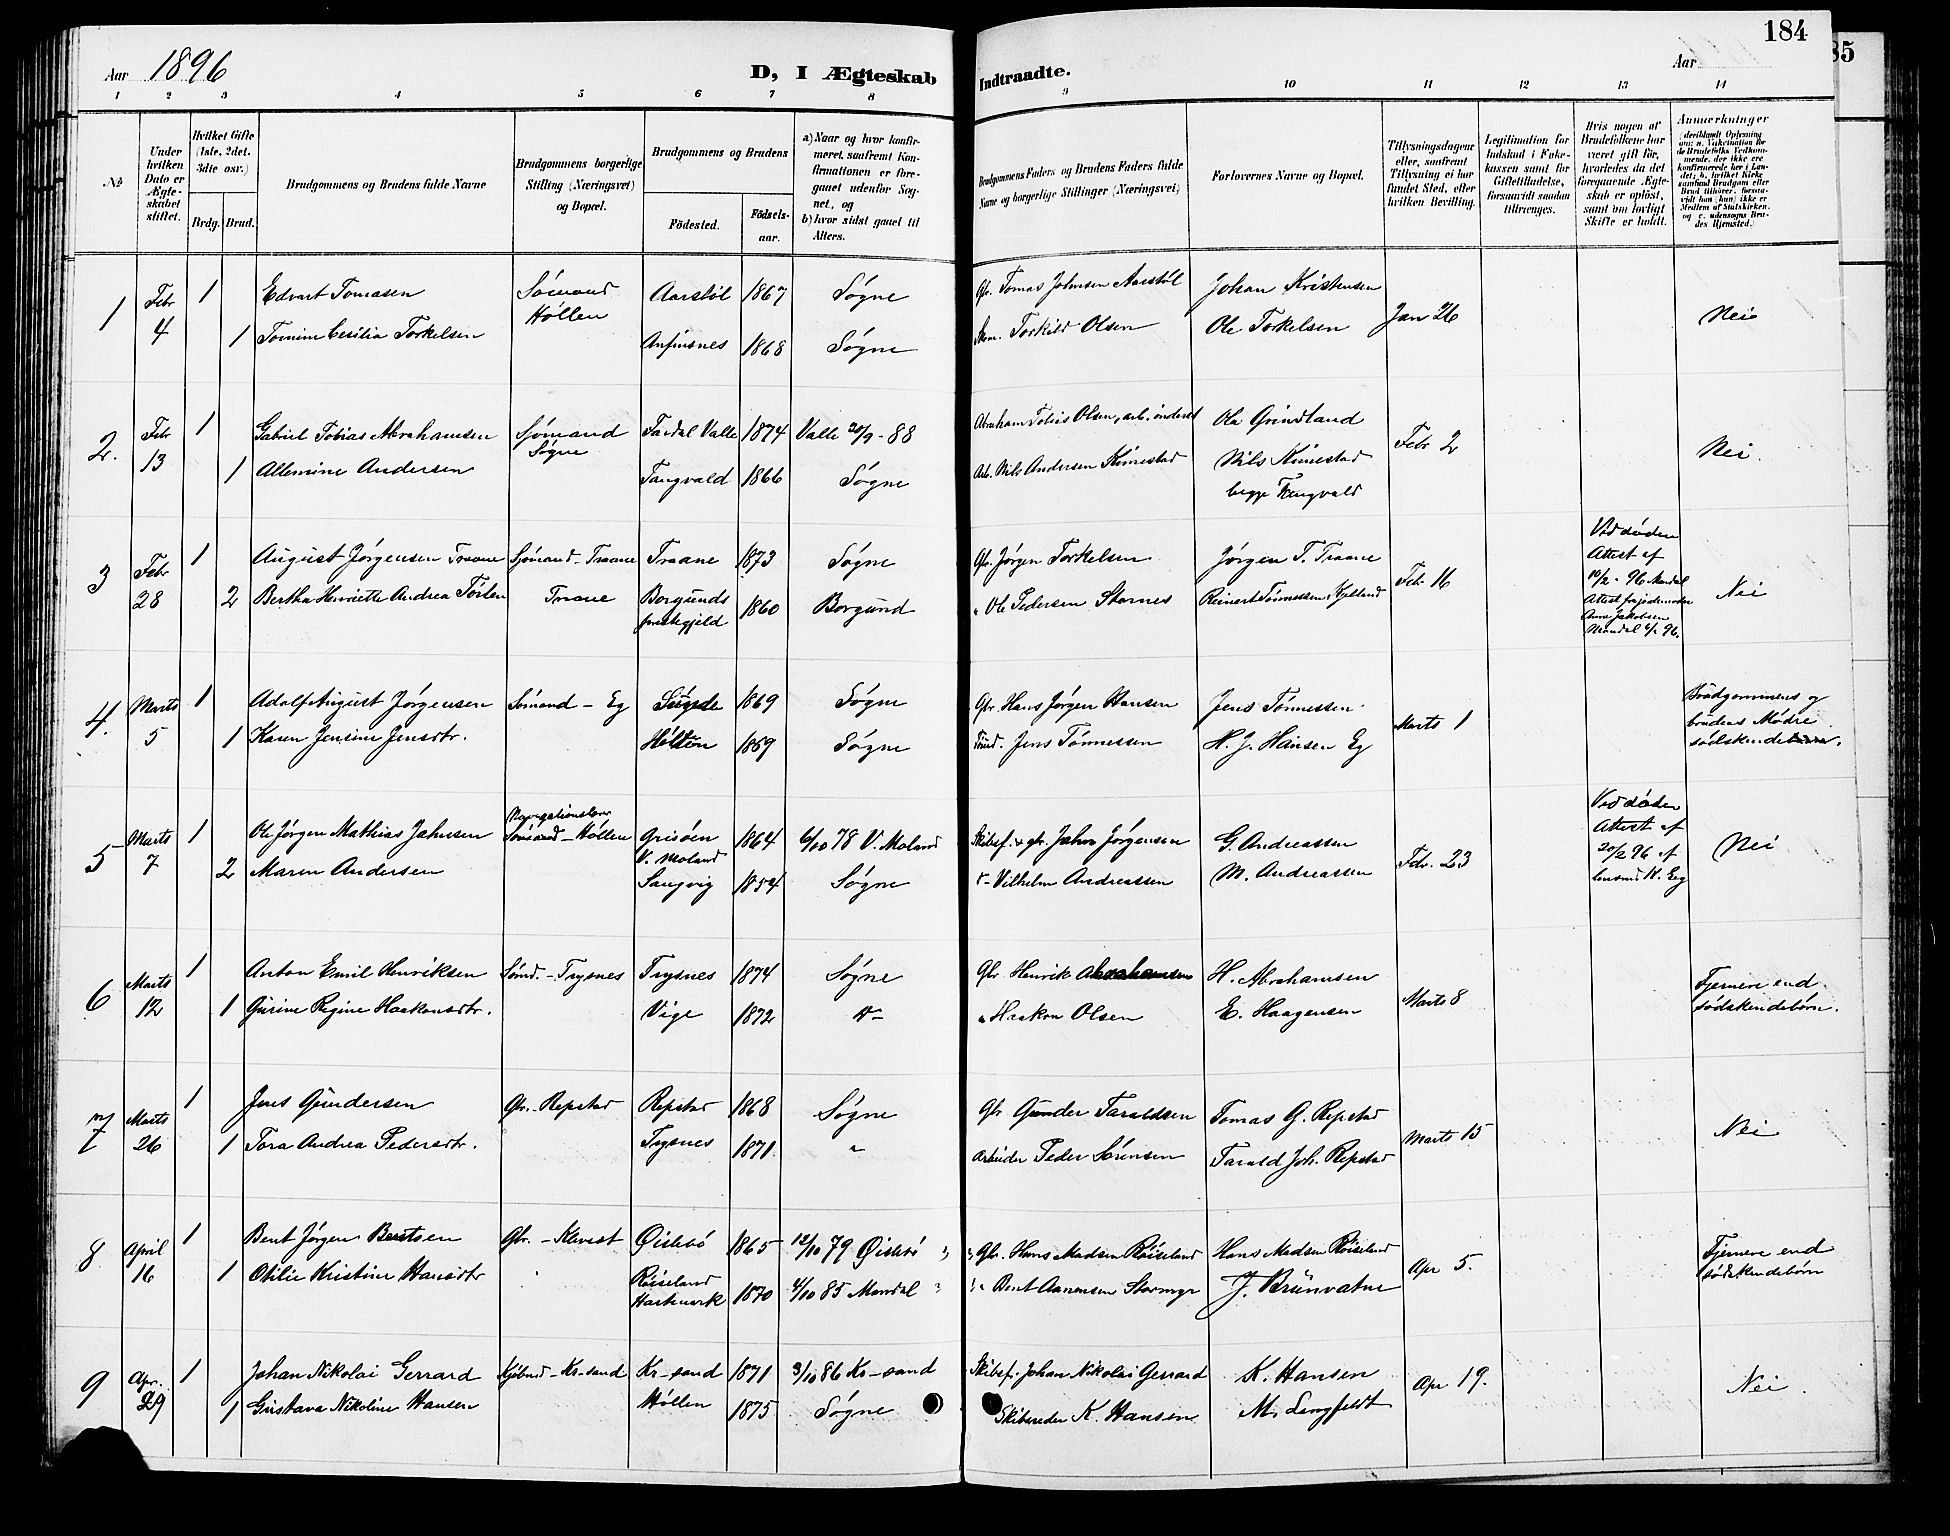 184
85
Aar 1896
D, I Ægteskab
Indtraadte.
Aar
1 2 3 4 5 6 7 8 9 10 11 12 13 14
No
Under hvilken Dato er Ægteskabet stiftet.
Hvilket Gifte (1ste, 2det, 3die osv.)
Brdg. Brud.
Brudgommens og Brudens fulde Navne
Brudgommens borgerlige Stilling (Næringsvei) og Bopæl.
Brudgommens og Brudens
Födested.
Födselsaar.
a) Naar og hvor konfirmeret, samt om Konfirmationen er foregaaet udenfor Sognet, og
b) hvor sidst gaaet til Alters.
Brudgommens Faders og Brudens Faders fulde Navne og borgerlige Stillinger (Næringsvei)
Forlovernes Navne og Bopæl.
Tillysningsdagene eller, saafremt Tillysning ei har fundet Sted, efter hvilken Bevilling.
Legitimation for Indskud i Enkekassen samt for Giftetilladelse, forsaavidt saadan tiltrænges.
Hvis nogen af Brudefolkene har været gift før, hvorledes da det foregaaende Ægteskab er opløst, samt om lovligt Skifte er holdt.
Anmerkninger
1 Febr 4 1 Edvart Tomasen Sømand Høllen Aarstøl 1867 Søgne Gbr. Tomas Johnsen Aarstøl Johan Kristensen Jan 26 Nei
1 Tomine Cesilia Torkelsen Anfinsnes 1868 Søgne Torkild Olsen Ole Torkelsen
2. Febr 13 1 Gabriel Tobias Abrahamsen Sjømand Søgne Faidal Valle 1874 Valle 20/9-88 Abraham Tobias Olsen, arb. Ole Grindland Febr 2 Nei.
1 Allemine Andersen Tangvald 1866 Søgne Arb. Nils Andersen Kimestad Nils Kimestad
begge Tangvald
3 Febr 28 1 August Jørgensen Traane Sjømand - Traane Traane 1873 Søgne Gbr. Jørgen Torkelsen Jørgen T. Traane Feb. 16 Ved døden Attest af 10/2-96 Mandal Attest fra jordemoder Anne Jakobsen Mandal 96. Nei
2 Bertha Henriette Andrea Traane Borgunds prestegjeld 1860 Borgund " Ole Pedersen Stornes Reinert Tønnessen Kylland
4. Marts 5 1 Adolf August Jørgensen Sømand - Eg 1869 Søgne Gbr. Hans Jørgen Hansen Jens Tønnessen Marts 1 Brudgommens og brudens Mødre sødskendebørn.
1 Karen Jensine Jensdtr. Holten 1859 Søgne Jens Tønnessen H. J. Hansen Eg
5 Marts 7 1 Ole Jørgen Mathias Jahnsen Navigationslærer Sømand - Høllen Grisøen V. Moland 1864 6/10 78 V. Moland Skibsf. & gbr. Jahn Jørgensen G. Andreassen Febr. 23 Ved døden Attest af 20/2 96 af lensmd. H. Eeg Nei
2 Maren Andersen Langvig 1854 Søgne Vilhelm Andreassen M. Andreassen
6 Marts 12 1 Anton Emil Henriksen Sømd. - Trysnes Trysnes 1874 Søgne Gbr. Henrik Abrahamsen H. Abrahamsen Marts 8 Fjernere end sødskendebørn.
1 Gurine Regine Haakonsdtr. Vige 1872 " Haakon Olsen E. Haagensen
7 Marts 26 1 Jens Gundersen Gbr. - Repstad Repstad 1868 Søgne Gbr Gunder Taraldsen Tomas G. Repstad Marts 15 Nei
1 Tora Andrea Pedersdtr. Trysnes 1871 " Arbeider Peder Sørensen Tarald Joh. Repstad
8 April 16 1 Bent Jørgen Bentsen Gbr. - Klevest Øislebø 1865 12/10 79 Øislebø Gbr. Hans Madsen Røiseland Hans Madsen Røiseland Apr 5. Fjernere end sødskendebørn
1 Otilie Kristine Hansdtr Røiseland Hartmark 1870 4/10 85 Mandal Bent Aanensen Stormyr J. Brunvatne
9 Apr. 29 1 Johan Nikolai Gerrard Kjøbmd - Kr-sand Kr-sand 1871 3/10 86 Kr-sand Skibsf. Johan Nikolai Gerrard K. Hansen Apr 19. Nei.
1 Gustava Nikoline Hansen Høllen 1875 Søgne Skibsreder K. Hansen M. Langfeldt